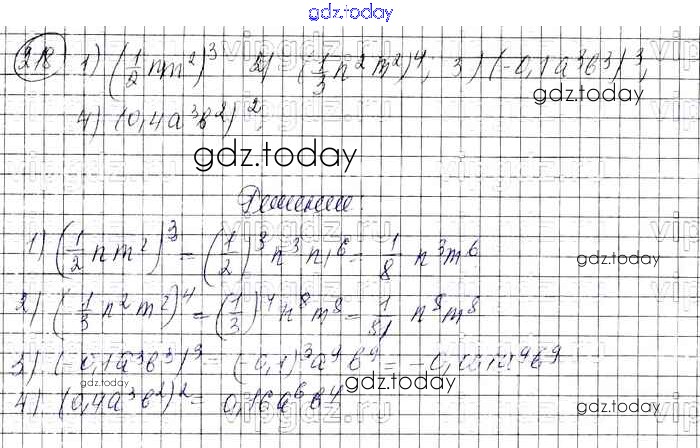 gdz.today
218 1) (1/2 nm²)³ 2) (1/3 n²m²)⁴; 3) (-0,1a³b³)³;
gdz.today
4) (0,4a³b²)²
gdz.today
Решение:
1) (1/2 nm²)³ = (1/2)³n³m⁶ = 1/8 n³m⁶
gdz.today
2) (1/3 n²m²)⁴ = (1/3)⁴n⁸m⁸ = 1/81 n⁸m⁸
3) (-0,1a³b³)³ = (-0,1)³a⁹b⁹ = -0,001a⁹b⁹
gdz.today
gdz.today
4) (0,4a³b²)² = 0,16a⁶b⁴
gdz.today